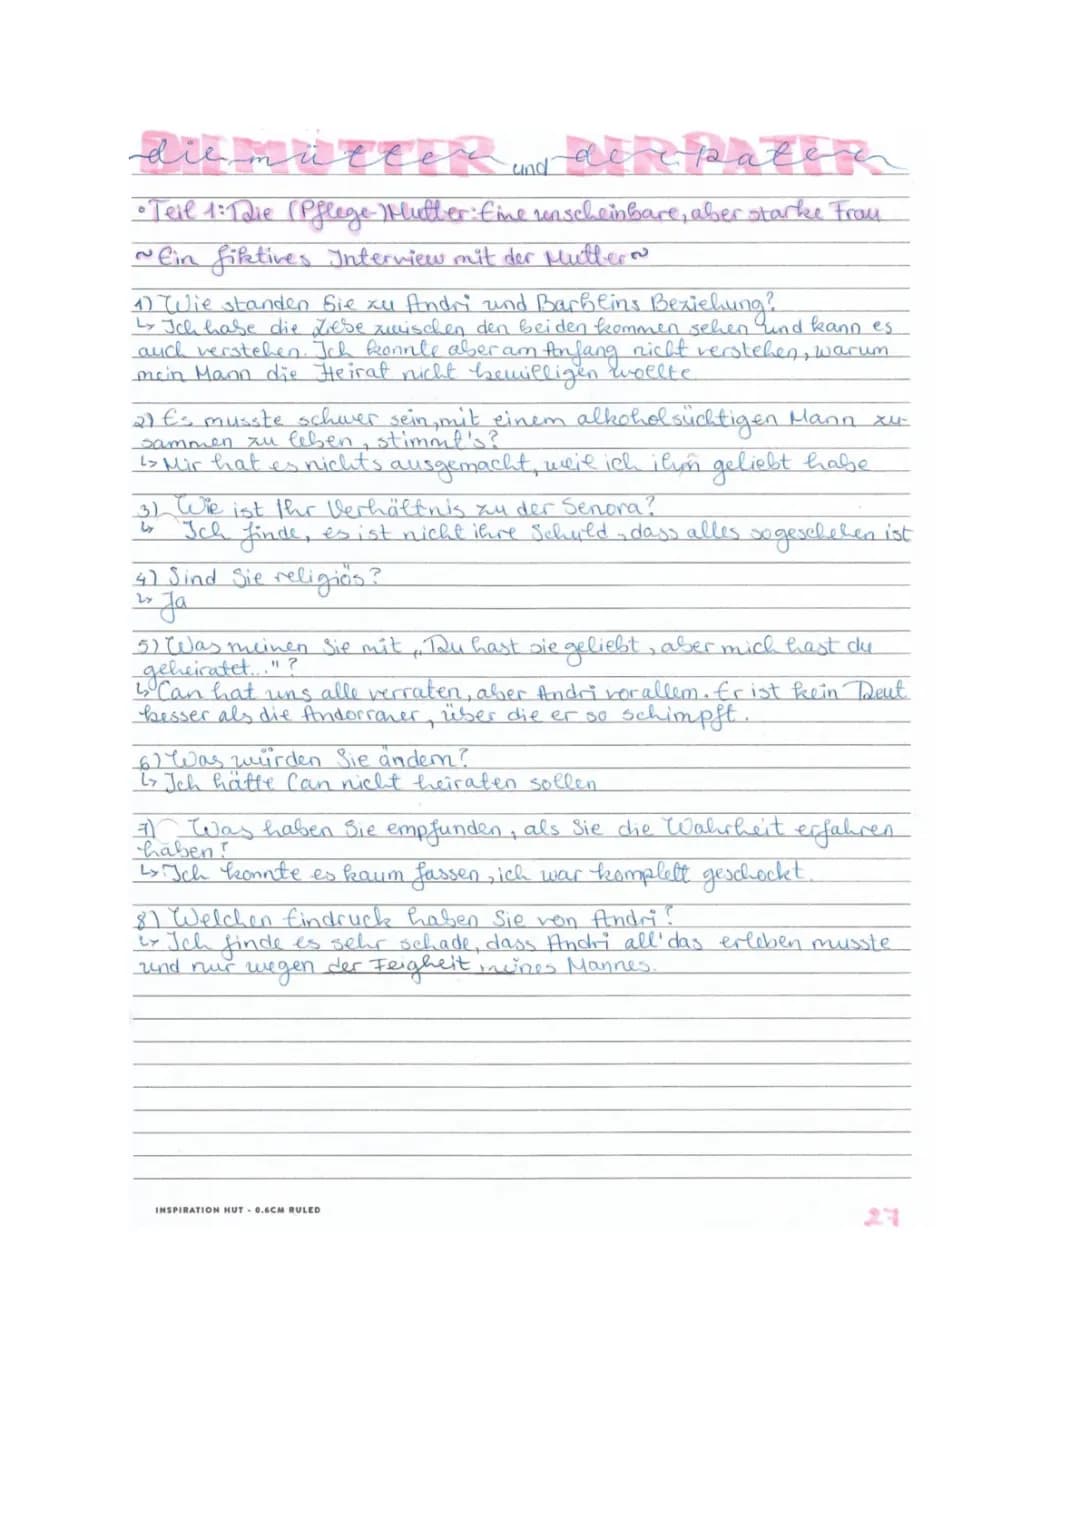 die mütter und der pater
• Teil 1: Die (Pflege-)Mutter: Eine unscheinbare, aber starke Frau
~ Ein fiktives Interview mit der Mutter ~
1) Wie standen Sie zu Andri und Barbeins Beziehung?
↳ Ich habe die Liebe zwischen den beiden kommen sehen und kann es
auch verstehen. Ich konnte aber am Anfang nicht verstehen, warum
mein Mann die Heirat nicht bewilligen wollte
2) Es musste schwer sein, mit einem alkoholsüchtigen Mann zu-
sammen zu leben, stimmt's?
↳ Mir hat es nichts ausgemacht, weil ich ihn geliebt habe
3) Wie ist Ihr Verhältnis zu der Senora?
↳ Ich finde, es ist nicht ihre Schuld, dass alles so geschehen ist
4) Sind Sie religiös?
↳ Ja
5) Was meinen Sie mit „Du hast sie geliebt, aber mich hast du
geheiratet..."?
↳ Can hat uns alle verraten, aber Andri vor allem. Er ist kein Deut
besser als die Andorraner, über die er so schimpft.
6) Was würden Sie ändern?
↳ Ich hätte Can nicht heiraten sollen
7) Was haben Sie empfunden, als Sie die Wahrheit erfahren
haben?
↳ Ich konnte es kaum fassen, ich war komplett geschockt.
8) Welchen Eindruck haben Sie von Andri?
↳ Ich finde es sehr schade, dass Andri all' das erleben musste
und nur wegen der Feigheit meines Mannes.
INSPIRATION HUT - 0.6CM RULED
27